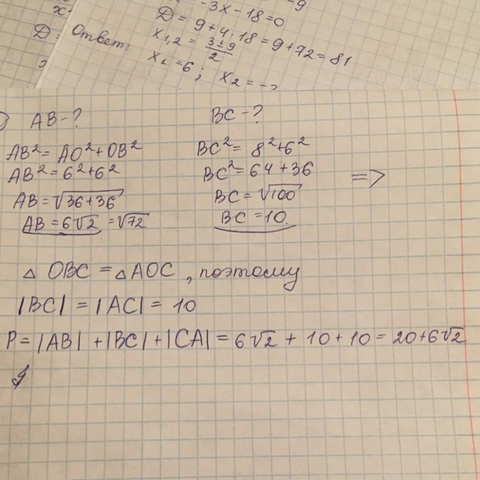 -3x - 18 = 0
D = 9 + 4 · 18 = 9 + 72 = 81
D
Ответ:
x₁,₂ = (3 ± 9)/2
x₁ = 6 ; x₂ =
AB - ?
AB² = AO² + OB²
AB² = 6² + 6²
AB = √(36 + 36)
AB = 6√2 = √72
BC - ?
BC² = 8² + 6²
BC² = 64 + 36
BC = √100
BC = 10
=>
△ OBC = △ AOC , поэтому
|BC| = |AC| = 10
P = |AB| + |BC| + |CA| = 6√2 + 10 + 10 = 20 + 6√2